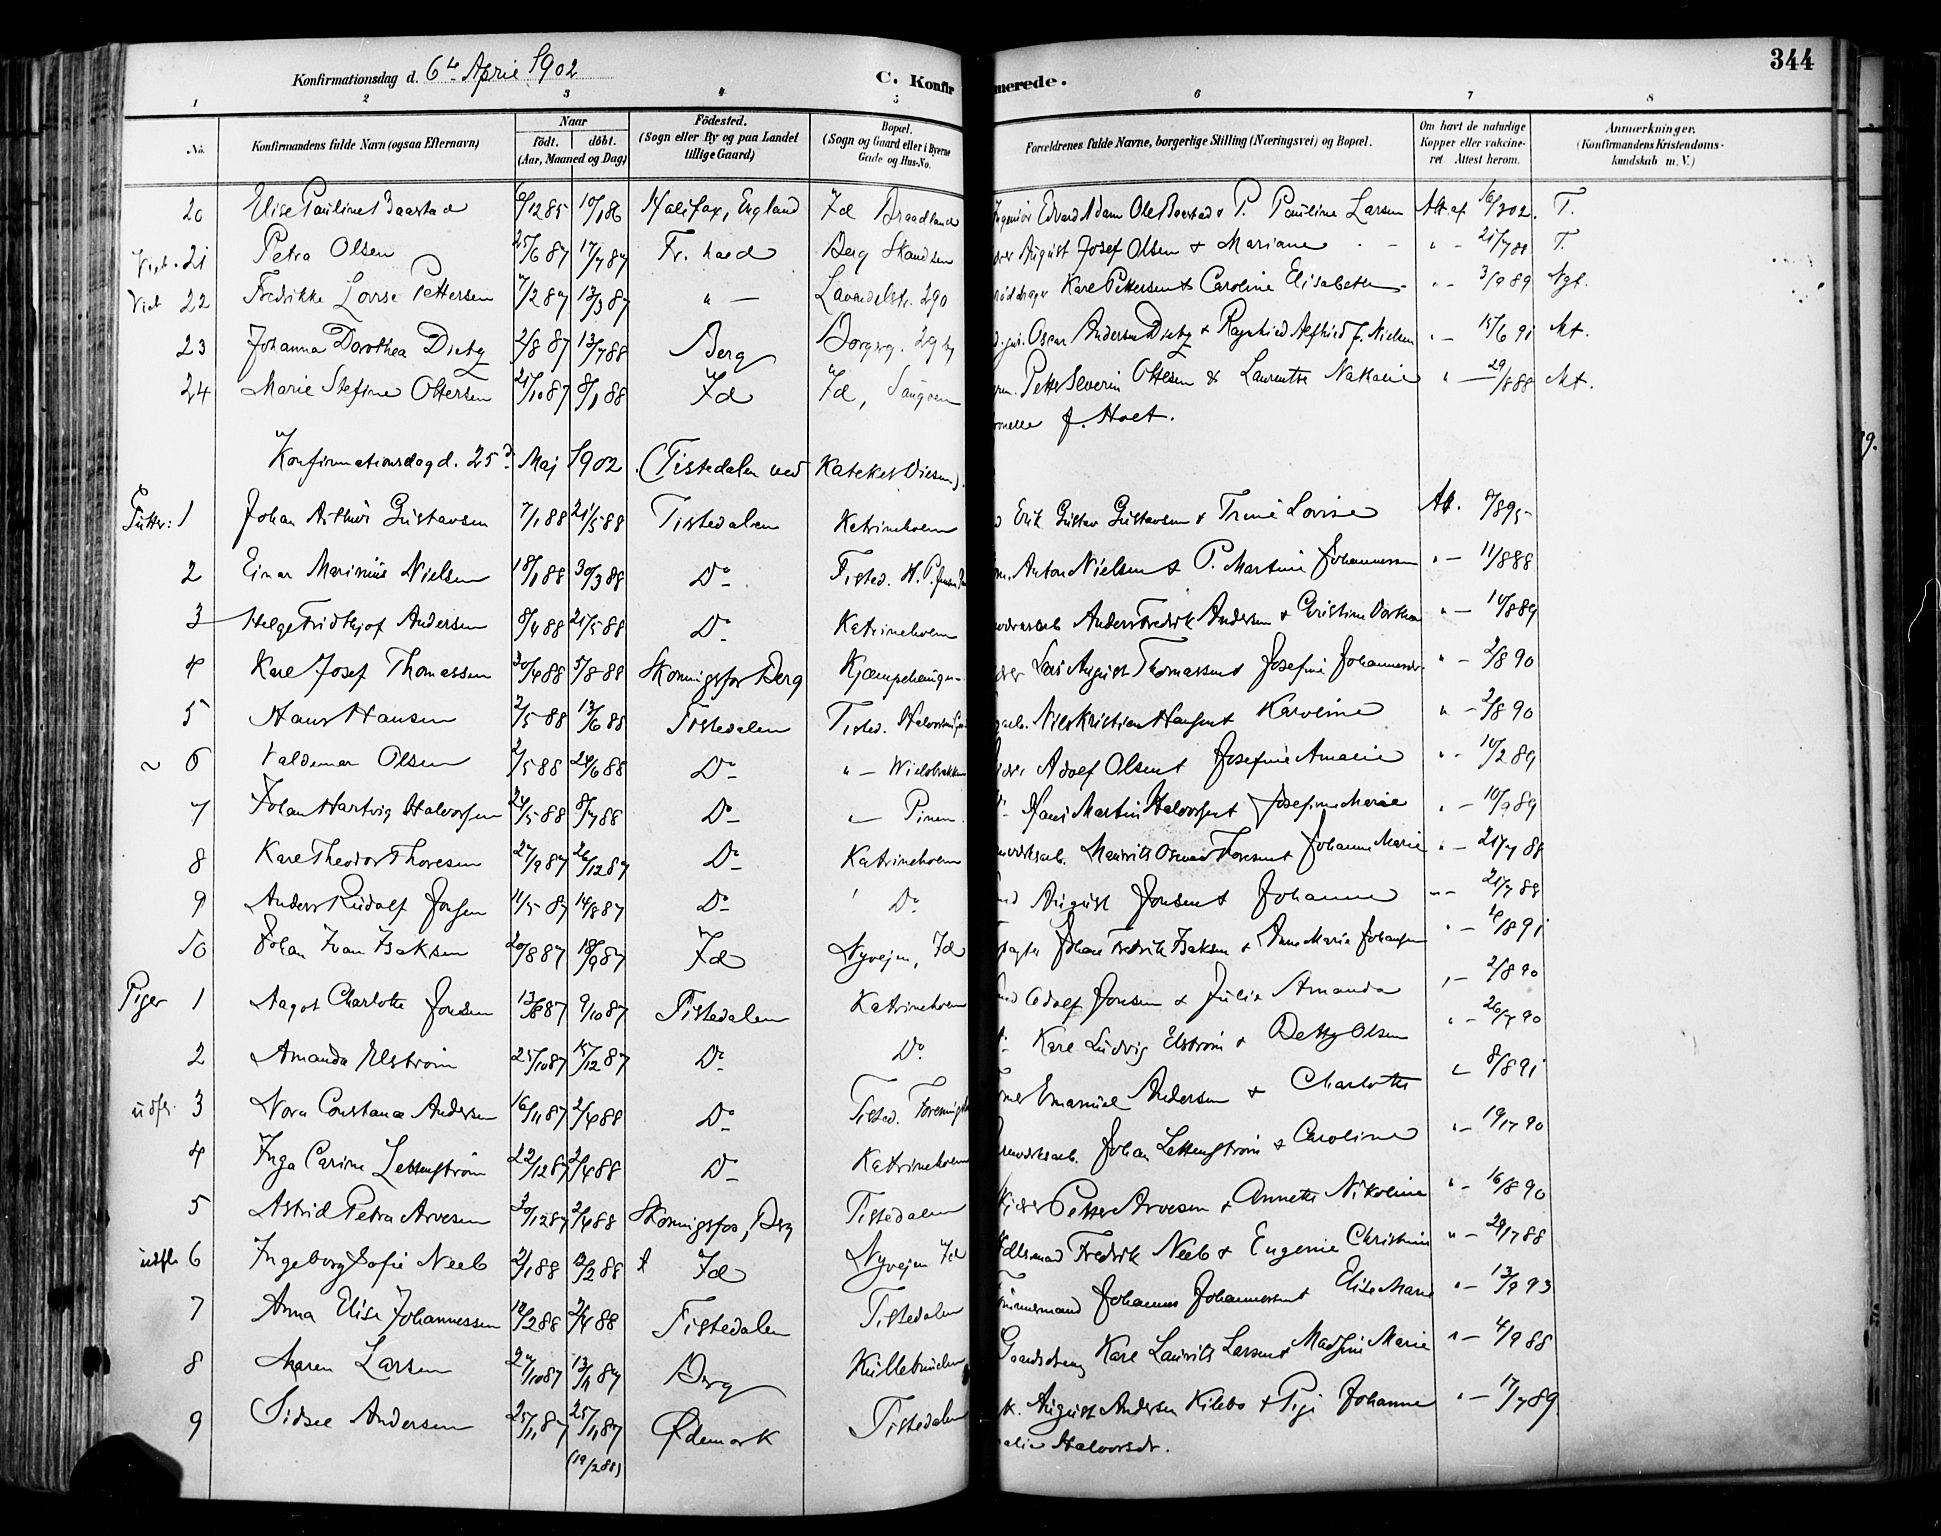 344
Konfirmationsdag d. 6te April 1902 C. Konfirmerede.
1 2 3 4 5 6 7 8
No. Konfirmandens fulde Navn (ogsaa Efternavn) Naar født. døbt. (Aar, Maaned og Dag) Fødested. (Sogn eller By og paa Landet tillige Gaard) Bopæl. (Sogn og Gaard eller i Byerne Gade og Hus-No. Forældrenes fulde Navne, borgerlige Stilling (Næringsvei) og Bopæl. Om havt de naturlige Kopper eller vakcineret Attest herom. Anmærkninger. (Konfirmandens Kristendomskundskab m. V.)
20 Elise Pauline Baastad 6/12 85 10/1 86 Halifax, England Id Braadland Edvard Adam Ole Baastad & P. Pauline Larsen Att. af 16/3 02. T.
21 Petra Olsen 25/6 87 17/7 87 Fr.hald Berg Skandsen August Josef Olsen & Mariane " - 21/7 88 T.
22 Fredrikke Lovise Pettersen 7/2 87 13/3 87 " — Lavendelstr. 290 Karl Pettersen & Caroline Elisabeth " - 3/9 89 Ngt.
23 Johanna Dorothea Dietz 2/8 87 13/7 88 Berg Borgerg. Oscar Andersen Dietz & Ragnhild Alfhild f. Nielsen " - 15/6 91 Mt.
24 Marie Stefine Ottersen 21/10 87 8/1 88 Id Id, Petter Severin Ottesen & Laurentse Natalie " — 29/8 88 Mt.
f. Holt.
Konfirmationsdag d. 25d Maj 1902. (Tistedalen ved Kateket Diesen).
Gutter: 1 Johan Arthur Gustavsen 7/1 88 21/5 88 Tistedalen Katrineholm Erik Gustav Gustavsen & Trine Lovise Att. 7/8 95
2 Einar Marinius Nielsen 18/1 88 30/3 88 Do Tisted. Anton Nielsen & P. Martine Johannessen " - 11/8 88
3 Helge Fridthjof Andersen 8/4 88 21/5 88 Do Katrineholm Anders Fredrik Andersen & Christine Dorthea " - 14/8 89
4 Karl Josef Thomassen 30/4 88 5/8 88 Skonningsfos Berg Kjæmpehaugen Lars August Thomassen & Josefine Johannesdr. " - 2/8 90
5 Hans Hansen 2/5 88 13/6 88 Tistedalen Tisted. Nils Kristian Hansen & Karoline " - 2/8 90
6 Valdemar Olsen 2/5 88 24/6 88 Do " — Adolf Olsen & Josefine Amalie " - 14/2 89
7 Johan Hartvig Halvorsen 24/5 88 8/7 88 Do " — Pinen Hans Martin Halvorsen & Josefine Marie " - 10/9 89
8 Karl Theodor Thoresen 27/9 87 26/12 87 Do Katrineholm Mauritz Oscar Thoresen & Johanne Marie " - 21/7 88
9 Anders Rudolf Jonsen 11/5 87 14/8 87 Do Do August Jonsen & Johanne " - 21/7 88
10 Johan Ivan Isaksen 20/8 87 18/9 87 Id Nyvejen, Id Johan Fredrik Isaksen & Anne Marie Johansen " - 4/8 91
Piger 1 Aagot Charlotte Jonsen 13/8 87 9/10 87 Tistedalen Katrineholm Adolf Jonsen & Julie Amanda " - 2/8 90
2 Amanda Elstrøm 25/10 87 15/12 87 Do Do. Karl Ludvig Elstrøm & Betty Olsen " - 26/7 90
udfl. 3 Nora Constance Andersen 16/11 87 2/4 88 Do Tisted. Emanuel Andersen & Charlotte " 8/8 91
4 Inga Carine Lettenstrøm 22/12 87 2/4 88 Do Katrineholm Johan Lettenstrøm & Caroline " - 19/7 90
5 Astrid Petra Arvesen 30/12 87 2/4 88 Skonningsfos, Berg Tistedalen Petter Arvesen & Annette Nikoline " - 16/8 90
udfl. 6 Ingeborg Sofie Neeb 2/1 88 12/2 88 Id Nyvejen Id Fredrik Neeb & Eugenie Christine " - 29/7 88
7 Anna Elise Johannessen 12/2 88 2/4 88 Tistedalen Tistedalen Tømmermand Johannes Johannessen & Elise Marie " - 13/9 93
8 Maren Larsen 27/10 87 13/11 87 Berg Karl Lauritz Larsen & Mathine Marie " - 4/9 88
9 Sidsel Andersen 25/11 87 25/11 87 Ødemark Tistedalen August Andersen Kilebo & Pige Johanne " - 17/7 89.
(19/2 88) Halvorsdr.